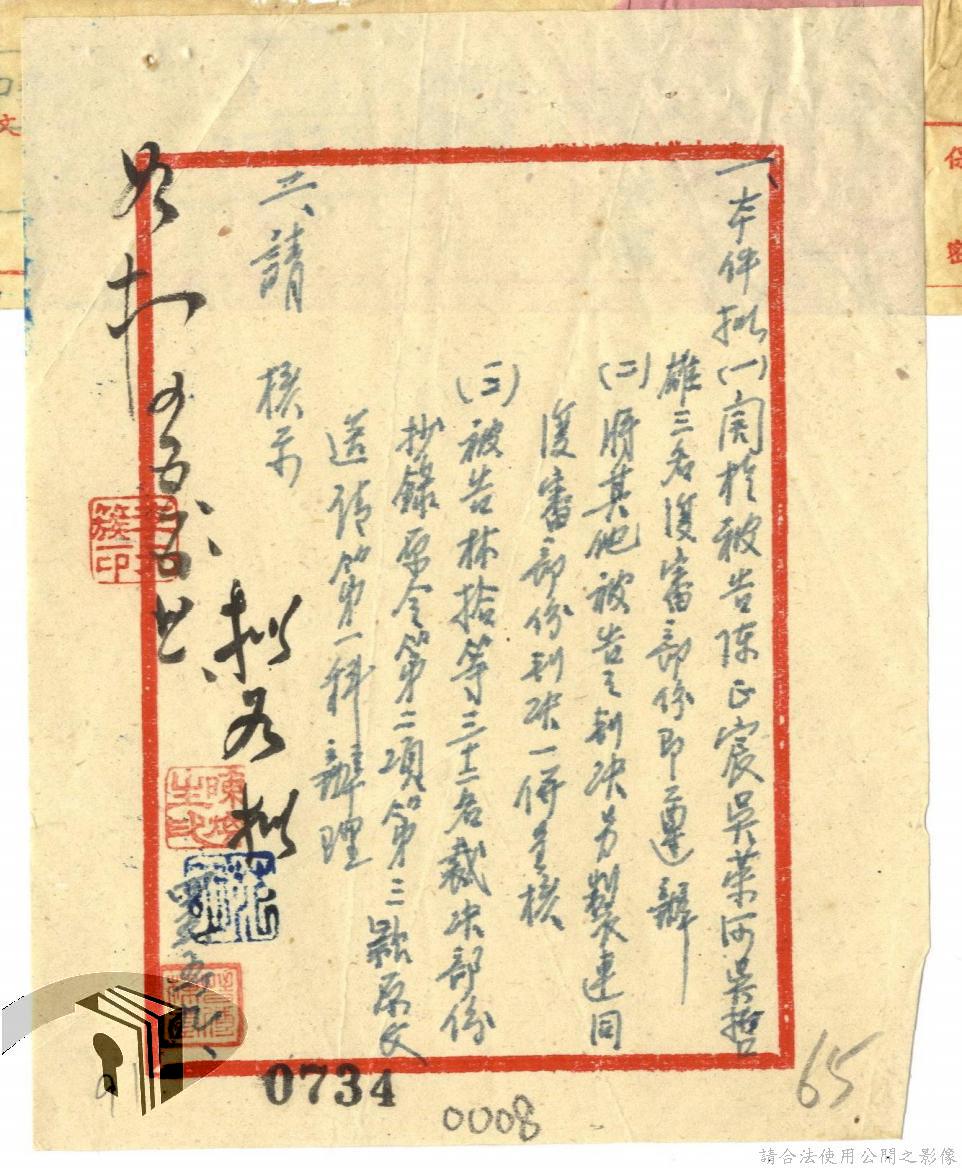 一、本件擬(一)關於被告陳正宸吳榮河吳哲
雄三名復審部份即遵辦
(二)將其他被告之判決另製連同
復審部份判決一併呈核
(三)被告林拾等三十二名裁决部份
抄錄原令第二項第三款原文
送請第一科辦理
二、請
核示
拟
如拟
0734
0008
65
文
保
密
請合法使用公開之影像